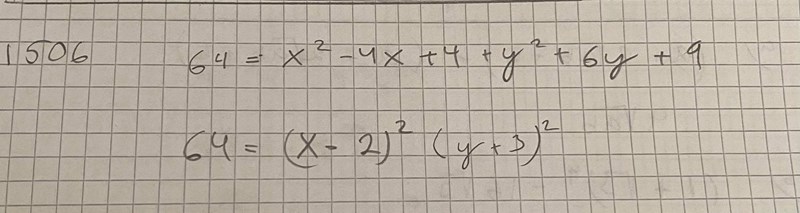 1506 64 = x² - 4x + 4 + y² + 6y + 9
64 = (x - 2)² (y + 3)²